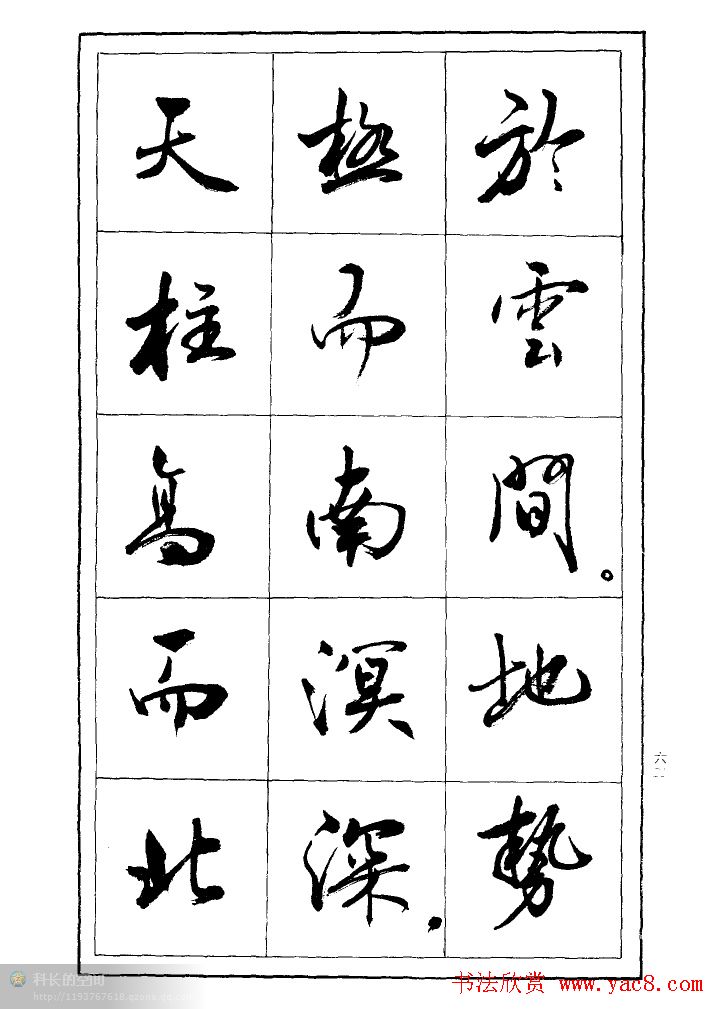 於雲間。地勢
極而南溟深。
天柱高而北
六二
科长的空间
http://1193767618.qzone.qq.com
书法欣赏 www.yac8.com